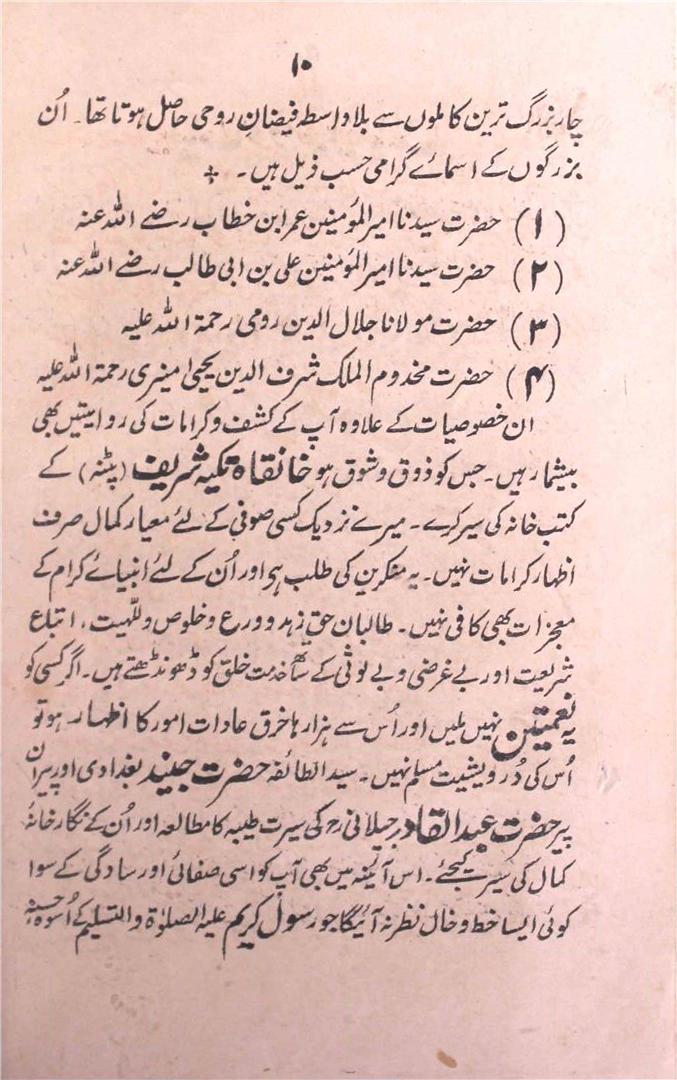 ۱۰
چار بزرگ ترین کاملوں سے بلا واسطہ فیضانِ روحی حاصل ہوتا تھا۔ اُن
بزرگوں کے اسمائے گرامی حسب ذیل ہیں۔
(۱) حضرت سیدنا امیر المؤمنین عمر ابن خطاب رضے اللہ عنہ
(۲) حضرت سیدنا امیر المؤمنین علی بن ابی طالب رضے اللہ عنہ
(۳) حضرت مولانا جلال الدین رومی رحمۃ اللہ علیہ
(۴) حضرت مخدوم الملک شرف الدین یحییٰ منیری رحمۃ اللہ علیہ
ان خصوصیات کے علاوہ آپ کے کشف و کرامات کی روایتیں بھی
بیشمار ہیں۔ جس کو ذوق و شوق ہو خانقاہ تکیہ شریف (پٹنہ) کے
کتب خانہ کی سیر کرے۔ میرے نزدیک کسی صوفی کے لئے معیار کمال صرف
اظہار کرامات نہیں۔ یہ منکرین کی طلب ہے اور اُن کے لئے انبیائے کرام کے
معجزات بھی کافی نہیں۔ طالبان حق زہد و ورع و خلوص و للّٰہیت، اتباع
شریعت اور بے غرضی و بے لوثی کے ساتھ خدمت خلق کو ڈھونڈھتے ہیں۔ اگر کسی کو
یہ نعمتیں نہیں ملیں اور اُس سے ہزارہا خرق عادات امور کا اظہار ہو تو
اُس کی درویشیت مسلم نہیں۔ سید الطائفہ حضرت جنید بغدادی اور پیران
پیر حضرت عبدالقادر جیلانی رح کی سیرت طیبہ کا مطالعہ اور اُن کے نگارخانۂ
کمال کی سیر کیجئے۔ اس آئینہ میں بھی آپ کو اسی صفائی اور سادگی کے سوا
کوئی ایسا خط و خال نظر نہ آئیگا جو رسول کریم علیہ الصلوٰۃ والتسلیم کے اُسوہ حسنہ